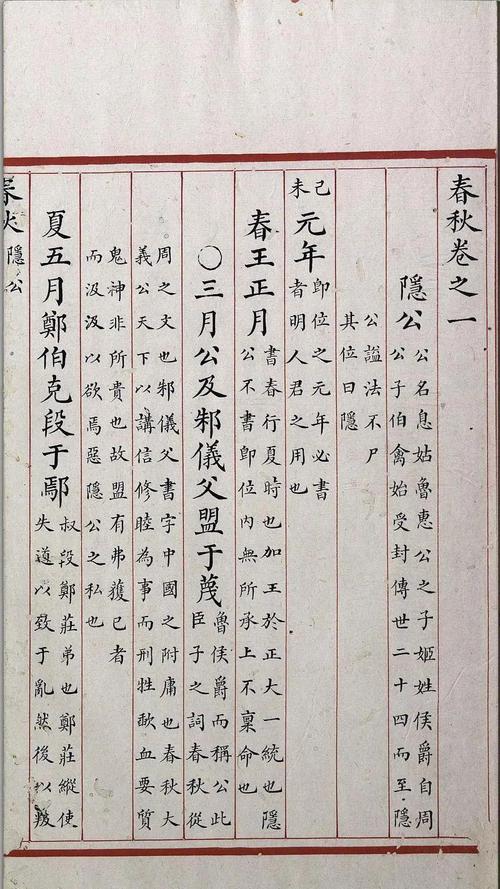 春秋卷之一
隱公
公名息姑魯惠公之子姬姓侯爵自周
公子伯禽始受封傳世二十四而至隱
公謚法不尸
其位曰隱
己未
元年
即位之元年必書
者明人君之用也
春王正月
書春行夏時也加王於正大一統也隱
公不書即位內無所承上不稟命也
〇三月公及邾儀父盟于蔑
魯侯爵而稱公此
臣子之詞春秋從
周之文也邾儀父書字中國之附庸也春秋大
義公天下以講信修睦為事而刑牲歃血要質
鬼神非所貴也故盟有弗獲已者
而汲汲以欲焉惡隱公之私也
夏五月鄭伯克段于鄢
叔段鄭莊弟也鄭莊縱使
失道以致于亂然後以叛
春秋
隱公